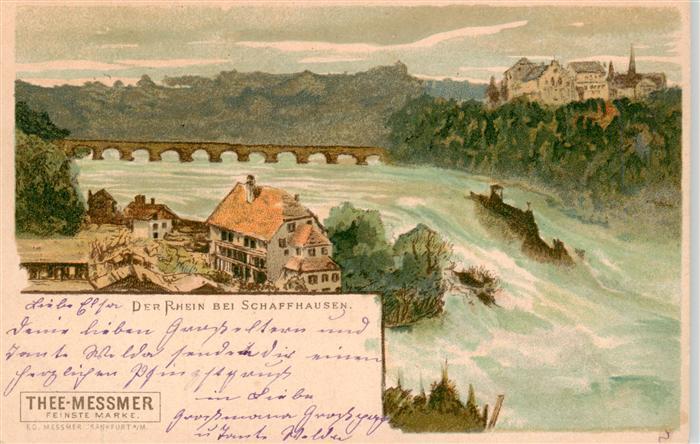 Liebe Elsa
DER RHEIN BEI SCHAFFHAUSEN.
Deine lieben Großeltern und
Tante Welda senden dir einen
herzlichen Pfingstgruß
in Liebe
Großmama Großpapa
u Tante Welda
THEE-MESSMER
FEINSTE MARKE.
ED. MESSMER FRANKFURT A/M.